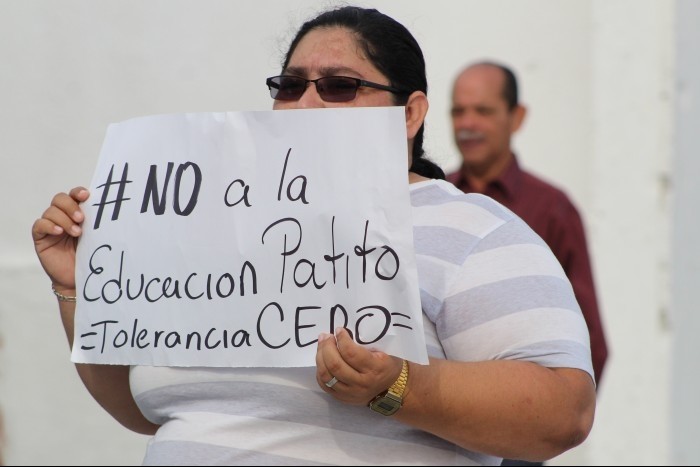 #NO a la
Educacion Patito
=Tolerancia CERO=